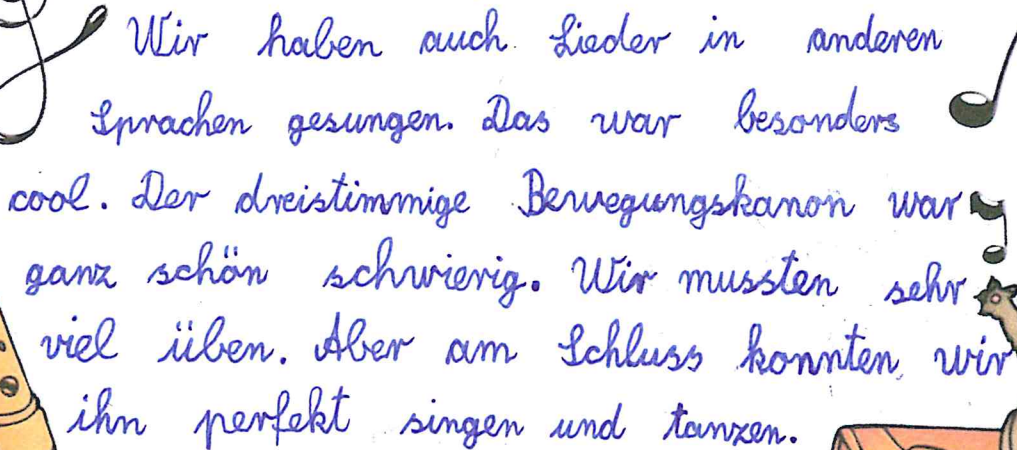 Wir haben auch Lieder in anderen
Sprachen gesungen. Das war besonders
cool. Der dreistimmige Bewegungskanon war
ganz schön schwierig. Wir mussten sehr
viel üben. Aber am Schluss konnten wir
ihn perfekt singen und tanzen.